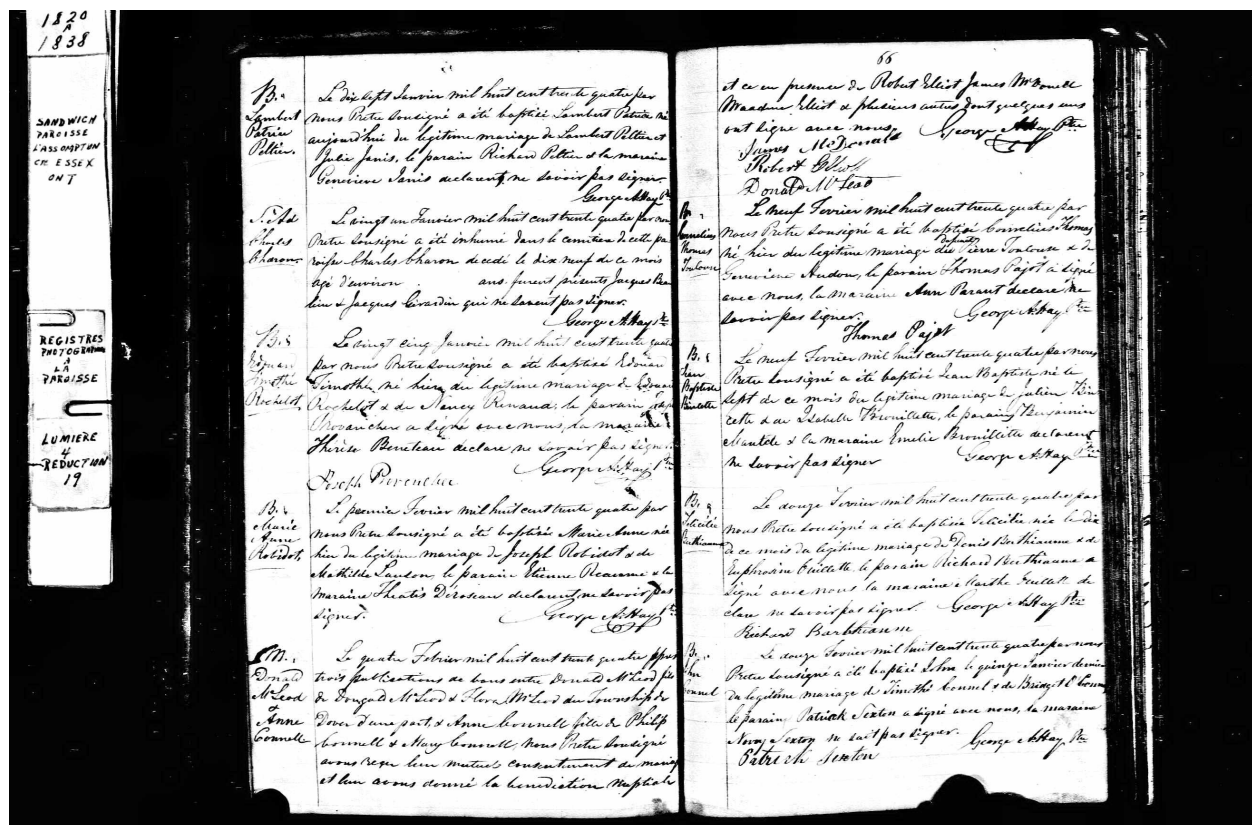 1820
A
1838
SANDWICH
PAROISSE
L'ASSOMPTION
CTE ESSEX
ONT
REGISTRES
PHOTOGRAPHIÉ
A
LA
PAROISSE
LUMIERE
4
REDUCTION
19
B.
Lambert
Patrice
Peltier.
Le dix sept Janvier mil huit cent trente quatre par
nous Pretre soussigné a été baptisé Lambert Patrice né
aujourd'hui du legitime mariage de Lambert Peltier et
Julie Janis, le parain Richard Peltier & la maraine
Genevieve Janis declarent ne savoir pas signer.
George A. Hay Ptre
S. Ad
Charles
Charon
Le vingt un Janvier mil huit cent trente quatre par nous
Pretre sousigné a été inhumé dans le cemitiere de cette pa
roisse Charles Charon decedé le dix neuf de ce mois
agé d'environ ans. furent présents Jacques Beau
lieu & Jacques Girardin qui ne savent pas signer.
George A. Hay Ptre
B.
Edouard
Timothé
Rochelot
Le vingt cinq Janvier mil huit cent trente quatre
par nous Pretre sousigné a été baptisé Edouard
Timothée, né hier du legitime mariage de Edouard
Rochelot & de Nancy Renaud; le parain Joseph
Provancher a signé avec nous, la maraine
Thérèse Beneteau declare ne savoir pas signer
George A. Hay Ptre
Joseph Provencher
B.
Marie
Anne
Robidot,
Le premier Fevrier mil huit cent trente quatre par
nous Pretre sousigné a été baptisée Marie Anne née
hier du legitime mariage de Joseph Robidot & de
Mathilde Lauson, le parain Etienne Reaume & la
maraine declarent ne savoir pas
signer.
George A. Hay Ptre
M.
Donald
McLeod
&
Anne
Connell
Le quatre Febrier mil huit cent trente quatre apres
trois publications de bans entre Donald McLeod fils
de Dougald McLeod & Flora McLeod du Township de
Dover d'une part, & Anne Connell fille de Philip
Connell & Mary Connell, nous Pretre sousigné
avons reçu leur mutuel consentement de mariage
et leur avons donné la benediction nuptiale
66
et ce en presence de Robert Elliot James McDonell
Elliot & plusieurs autres dont quelques uns
ont signé avec nous.
George A. Hay Ptre
James McDonald
Robert Elliott
Donald McLeod
B.
Cornelius
Thomas
Toulouse
Le neuf Fevrier mil huit cent trente quatre par
nous Pretre sousigné a été baptisé Cornelius Thomas
né hier du legitime mariage du defunt Pierre Toulouse & de
Genevieve Audou, le parain Thomas Pajot a signé
avec nous, la maraine Ann Parant declare ne
savoir pas signer.
George A. Hay Ptre
Thomas Pajot
B.
Jean
Baptiste
Le neuf Fevrier mil huit cent trente quatre par nous
Pretre sousigné a été baptisé Jean Baptiste né le
sept de ce mois du legitime mariage de Julien
& de Isabelle Brouillette, le parain Benjamin
& la maraine Emelie Brouillette declarent
ne savoir pas signer
George A. Hay Ptre
B.
Felicitée
Berthiaume
Le douze Fevrier mil huit cent trente quatre par
nous Pretre sousigné a été baptisée Felicitée née le dix
de ce mois du legitime mariage de Denis Berthiaume & de
Euphrosine Ouellette, le parain Richard Berthiaume a
signé avec nous la maraine Marthe Ouellette de
clare ne savoir pas signer.
George A. Hay Ptre
Richard Barthiaume
B.
John
Connel
Le douze Fevrier mil huit cent trente quatre par nous
Pretre sousigné a été baptisé John le quinze Janvier dernier
du legitime mariage de Timothé Connel & de Bridget
le parain Patrick Sexton a signé avec nous, la maraine
Sexton ne sait pas signer.
George A. Hay Ptre
Patrick Sexton